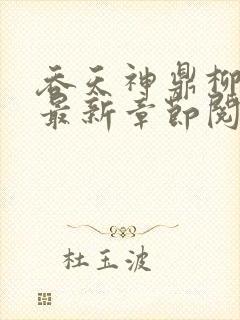 吞天神鼎柳
最新章节阅
杜玉波